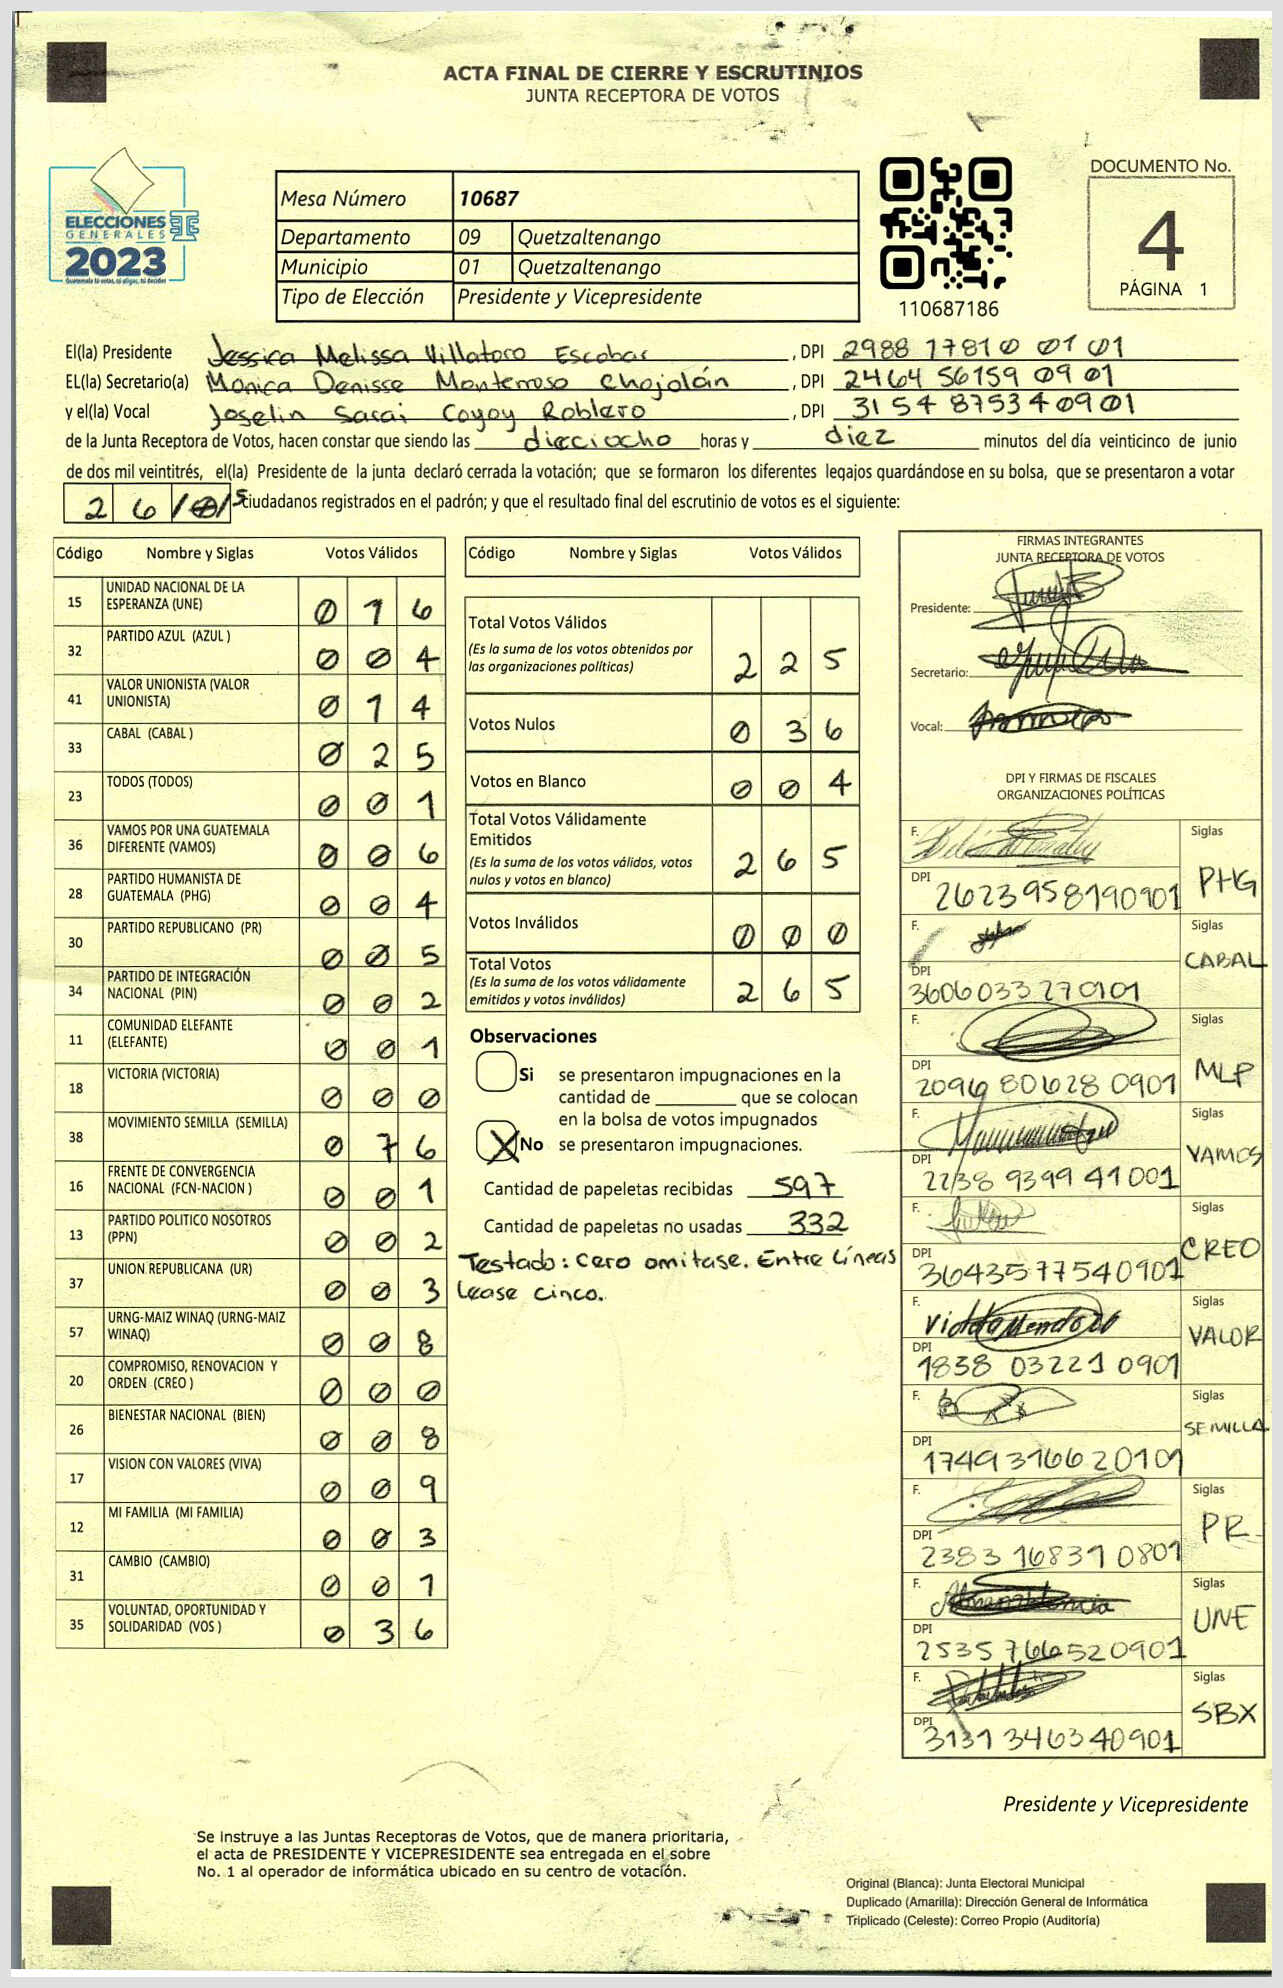 ACTA FINAL DE CIERRE Y ESCRUTINIOS
JUNTA RECEPTORA DE VOTOS
ELECCIONES
GENERALES
2023
Guatemala tú votas, tú eliges, tú decides
Mesa Número 10687
Departamento 09 Quetzaltenango
Municipio 01 Quetzaltenango
Tipo de Elección Presidente y Vicepresidente
110687186
DOCUMENTO No.
4
PÁGINA 1
El(la) Presidente Jessica Melissa Villatoro Escobar, DPI 2988 17810 0101
EL(la) Secretario(a) Monica Denisse Monterroso Chojolán, DPI 2464 56159 0901
y el(la) Vocal Joselin Sarai Coyoy Roblero, DPI 3154 87534 0901
de la Junta Receptora de Votos, hacen constar que siendo las dieciocho horas y diez minutos del día veinticinco de junio
de dos mil veintitrés, el(la) Presidente de la junta declaró cerrada la votación; que se formaron los diferentes legajos guardándose en su bolsa, que se presentaron a votar
2 6 /0/ 5 ciudadanos registrados en el padrón; y que el resultado final del escrutinio de votos es el siguiente:
Código Nombre y Siglas Votos Válidos
15 UNIDAD NACIONAL DE LA ESPERANZA (UNE) 0 1 6
32 PARTIDO AZUL (AZUL ) 0 0 4
41 VALOR UNIONISTA (VALOR UNIONISTA) 0 1 4
33 CABAL (CABAL ) 0 2 5
23 TODOS (TODOS) 0 0 1
36 VAMOS POR UNA GUATEMALA DIFERENTE (VAMOS) 0 0 6
28 PARTIDO HUMANISTA DE GUATEMALA (PHG) 0 0 4
30 PARTIDO REPUBLICANO (PR) 0 0 5
34 PARTIDO DE INTEGRACIÓN NACIONAL (PIN) 0 0 2
11 COMUNIDAD ELEFANTE (ELEFANTE) 0 0 1
18 VICTORIA (VICTORIA) 0 0 0
38 MOVIMIENTO SEMILLA (SEMILLA) 0 7 6
16 FRENTE DE CONVERGENCIA NACIONAL (FCN-NACION ) 0 0 1
13 PARTIDO POLITICO NOSOTROS (PPN) 0 0 2
37 UNION REPUBLICANA (UR) 0 0 3
57 URNG-MAIZ WINAQ (URNG-MAIZ WINAQ) 0 0 8
20 COMPROMISO, RENOVACION Y ORDEN (CREO ) 0 0 0
26 BIENESTAR NACIONAL (BIEN) 0 0 8
17 VISION CON VALORES (VIVA) 0 0 9
12 MI FAMILIA (MI FAMILIA) 0 0 3
31 CAMBIO (CAMBIO) 0 0 1
35 VOLUNTAD, OPORTUNIDAD Y SOLIDARIDAD (VOS ) 0 3 6
Código Nombre y Siglas Votos Válidos
Total Votos Válidos
(Es la suma de los votos obtenidos por las organizaciones políticas) 2 2 5
Votos Nulos 0 3 6
Votos en Blanco 0 0 4
Total Votos Válidamente Emitidos
(Es la suma de los votos válidos, votos nulos y votos en blanco) 2 6 5
Votos Inválidos 0 0 0
Total Votos
(Es la suma de los votos válidamente emitidos y votos inválidos) 2 6 5
Observaciones
Si se presentaron impugnaciones en la
cantidad de ________ que se colocan
en la bolsa de votos impugnados
X No se presentaron impugnaciones.
Cantidad de papeletas recibidas 597
Cantidad de papeletas no usadas 332
Testado: Cero omitase. Entre líneas
Lease cinco.
FIRMAS INTEGRANTES
JUNTA RECEPTORA DE VOTOS
Presidente:
Secretario:
Vocal:
DPI Y FIRMAS DE FISCALES
ORGANIZACIONES POLÍTICAS
F. Siglas
DPI 2623958190901 PHG
F. Siglas
DPI 3606033270101 CABAL
F. Siglas
DPI 2096 80628 0901 MLP
F. Siglas
DPI 2238 9399 41001 VAMOS
F. Siglas
DPI 3643577540901 CREO
F. Siglas
DPI 1838 03221 0901 VALOR
F. Siglas
DPI 1749316620101 SEMILLA
F. Siglas
DPI 2383 16831 0801 PR
F. Siglas
DPI 2535766520901 UNE
F. Siglas
DPI 3131 346340901 SBX
Presidente y Vicepresidente
Se instruye a las Juntas Receptoras de Votos, que de manera prioritaria,
el acta de PRESIDENTE Y VICEPRESIDENTE sea entregada en el sobre
No. 1 al operador de informática ubicado en su centro de votación.
Original (Blanca): Junta Electoral Municipal
Duplicado (Amarilla): Dirección General de Informática
Triplicado (Celeste): Correo Propio (Auditoría)